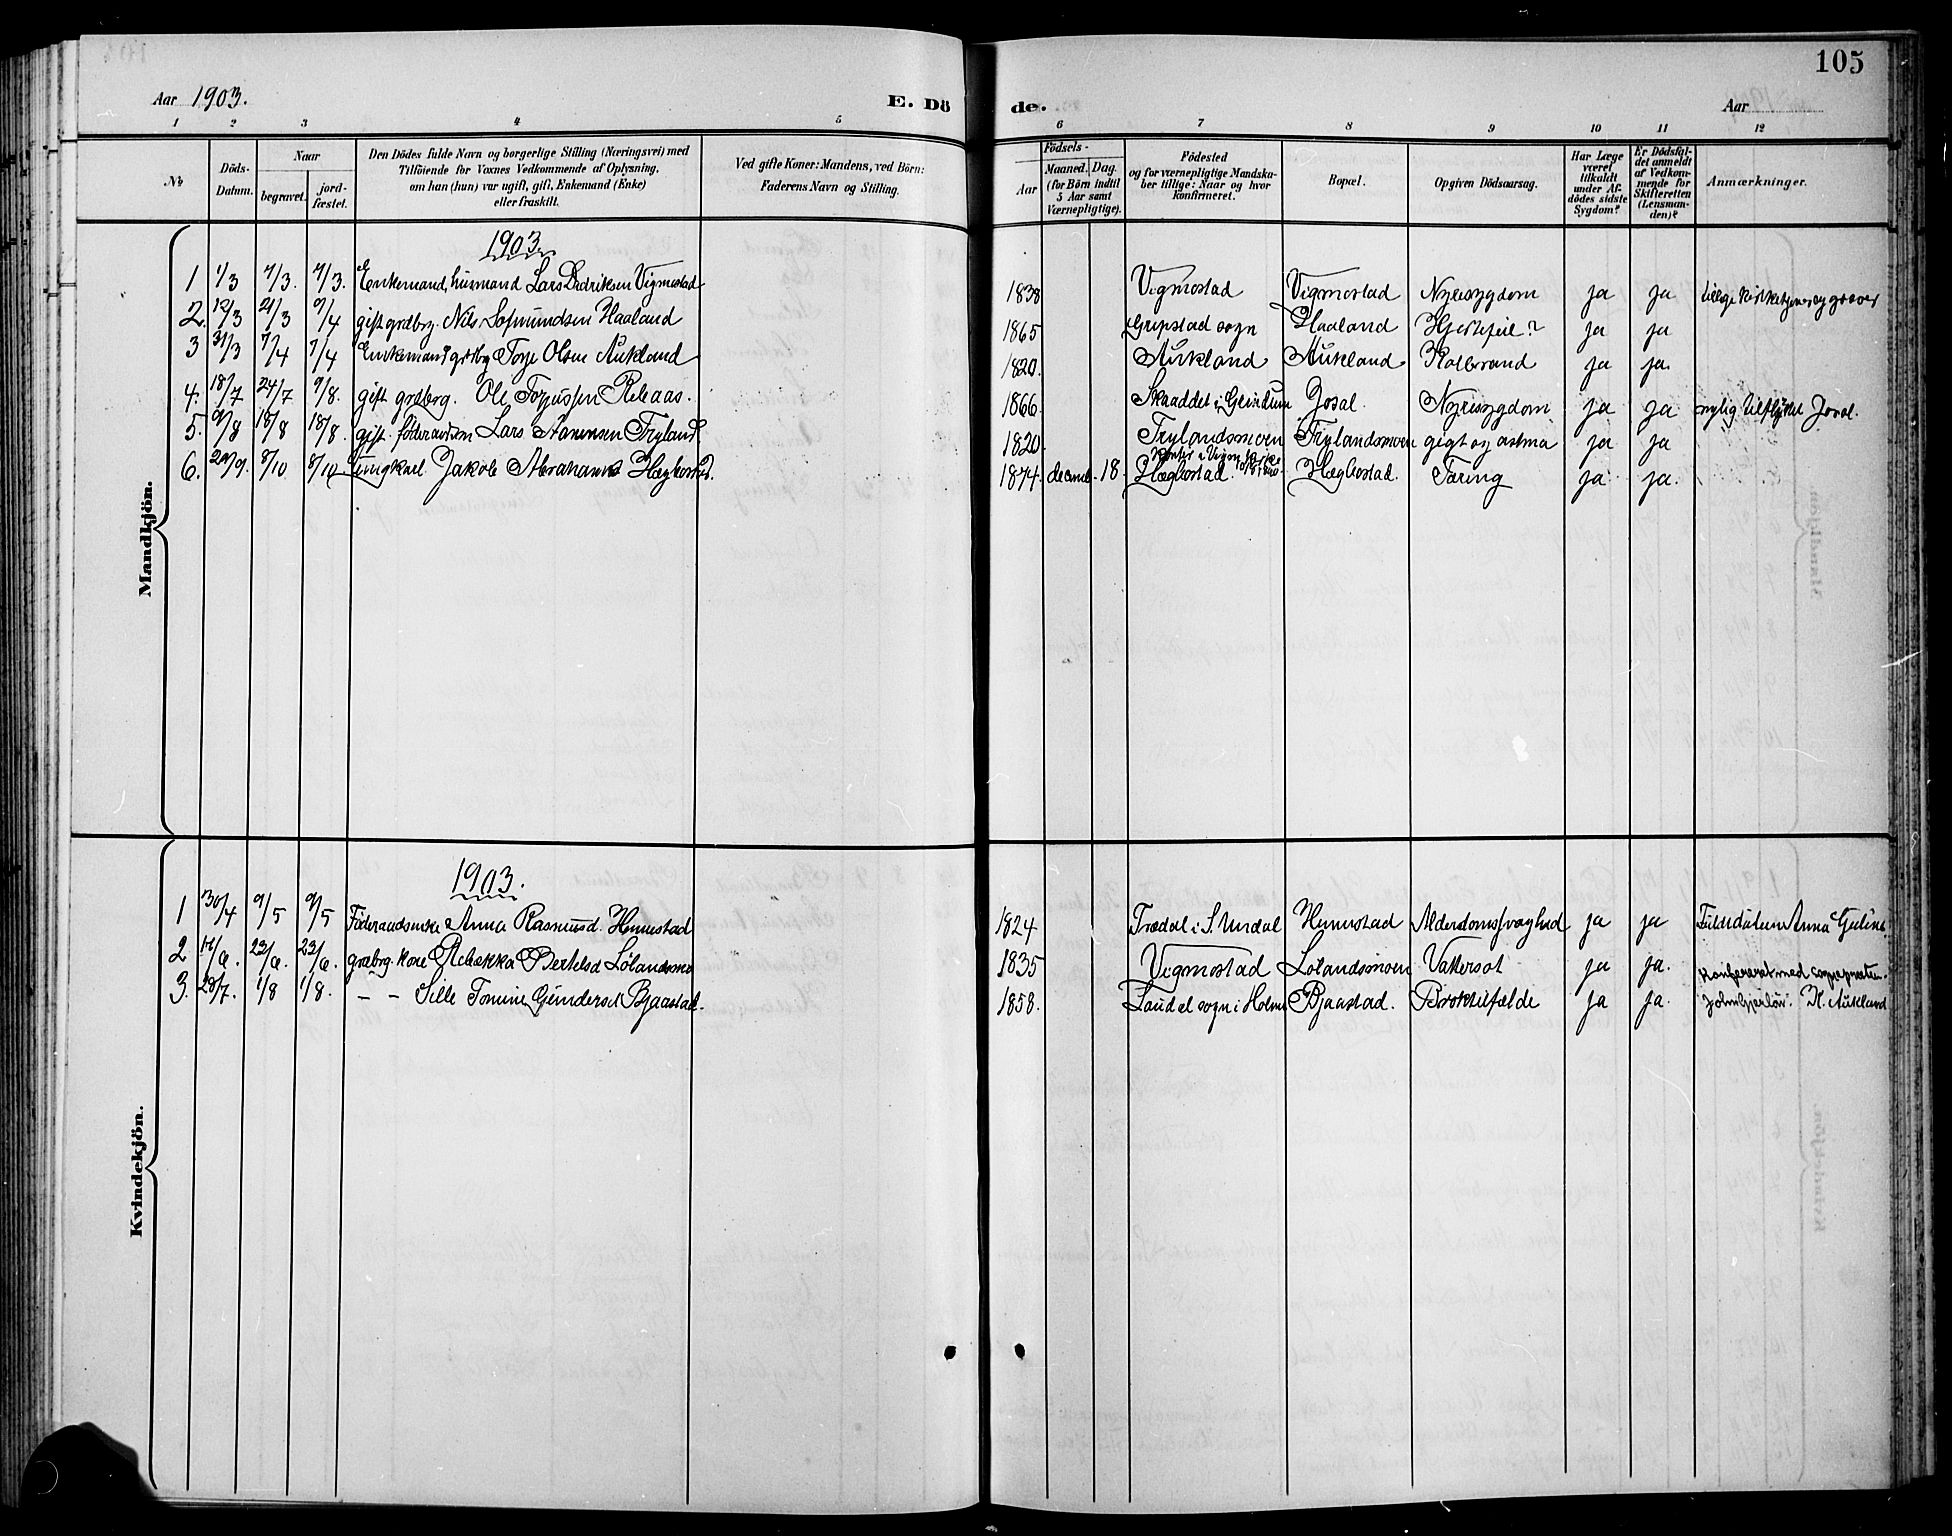 105
Aar 1903.
E. Dö de.
Aar
1 2 3 4 5 6 7 8 9 10 11 12
No
Döds-Datum.
Naar
begravet.
jord-fæstet.
Den Dödes fulde Navn og borgerlige Stilling (Næringsvei) med
Tilföiende for Voxnes Vedkommende af Oplysning,
om han (hun) var ugift, gift, Enkemand (Enke)
eller fraskilt.
Ved gifte Koner: Mandens, ved Börn:
Faderens Navn og Stilling.
Födsels-
Aar
Maaned. Dag.
(for Börn indtil
5 Aar samt
Værnepligtige).
Födested
og for værnepligtige Mandska-
ber tillige: Naar og hvor
konfirmeret.
Bopæl.
Opgiven Dödsaarsag.
Har Læge
været
tilkaldt
under Af-
dödes sidste
Sygdom?
Er Dödsfal-
det anmeldt
af Vedkom-
mende for
Skifteretten
(Lensman-
den)?
Anmærkninger.
Mandkjön.
1903.
1 1/3 7/3. 7/3. Enkemand, husmand Lars Didriksen Vigmostad 1838 Vigmostad Vigmostad Nyresygdom ja ja tillige kirketjener og graver
2. 12/3 21/3 9/4 gift grdbrg. Nils Sofmundsen Haaland 1865 Gripstad sogn Haaland Hjertefeil? ja ja
3 31/3 7/4 7/4 Enkemand grdbrg Torje Olsen Aukland 1820. Aukland Aukland Kolbrand ja ja.
4. 18/7 24/7 9/8. gift grdbrg. Ole Torjussen Releaas. 1866. Skaaddet i Grindum Josal. Nyresygdom ja ja nylig tilflyttet Josal.
5. 9/8 18/8 18/8. gift föderaadsm Lars Aanensen Tryland 1820. Trylandsmoen Trylandsmoen gigt og astma ja ja
6. 29/9. 8/10 8/10 Ungkarl Jakob Abrahams Hægbostad. 1874. decemb. 18. Hægbostad. Hægbostad. Tæring ja ja.
Kvindekjön.
1903.
1 30/4 9/5 9/5 Föderaadsenke Anna Rasmusd. Hennestad 1824 Trædal i S. Undal Hennestad Alderdomssvaghed ja ja
2 17/6. 23/6. 23/6. grdbrg. kone Rebekka Bertelsd Lölandsmo 1835 Vigmostad Lölandsmoen Vattersot ja ja.
3. 28/7. 1/8 1/8. – – Sille Tomine Gundersd Bjaastad. 1858. Laudal sogn i Holme Bjaastad. Broktilfælde ja ja.